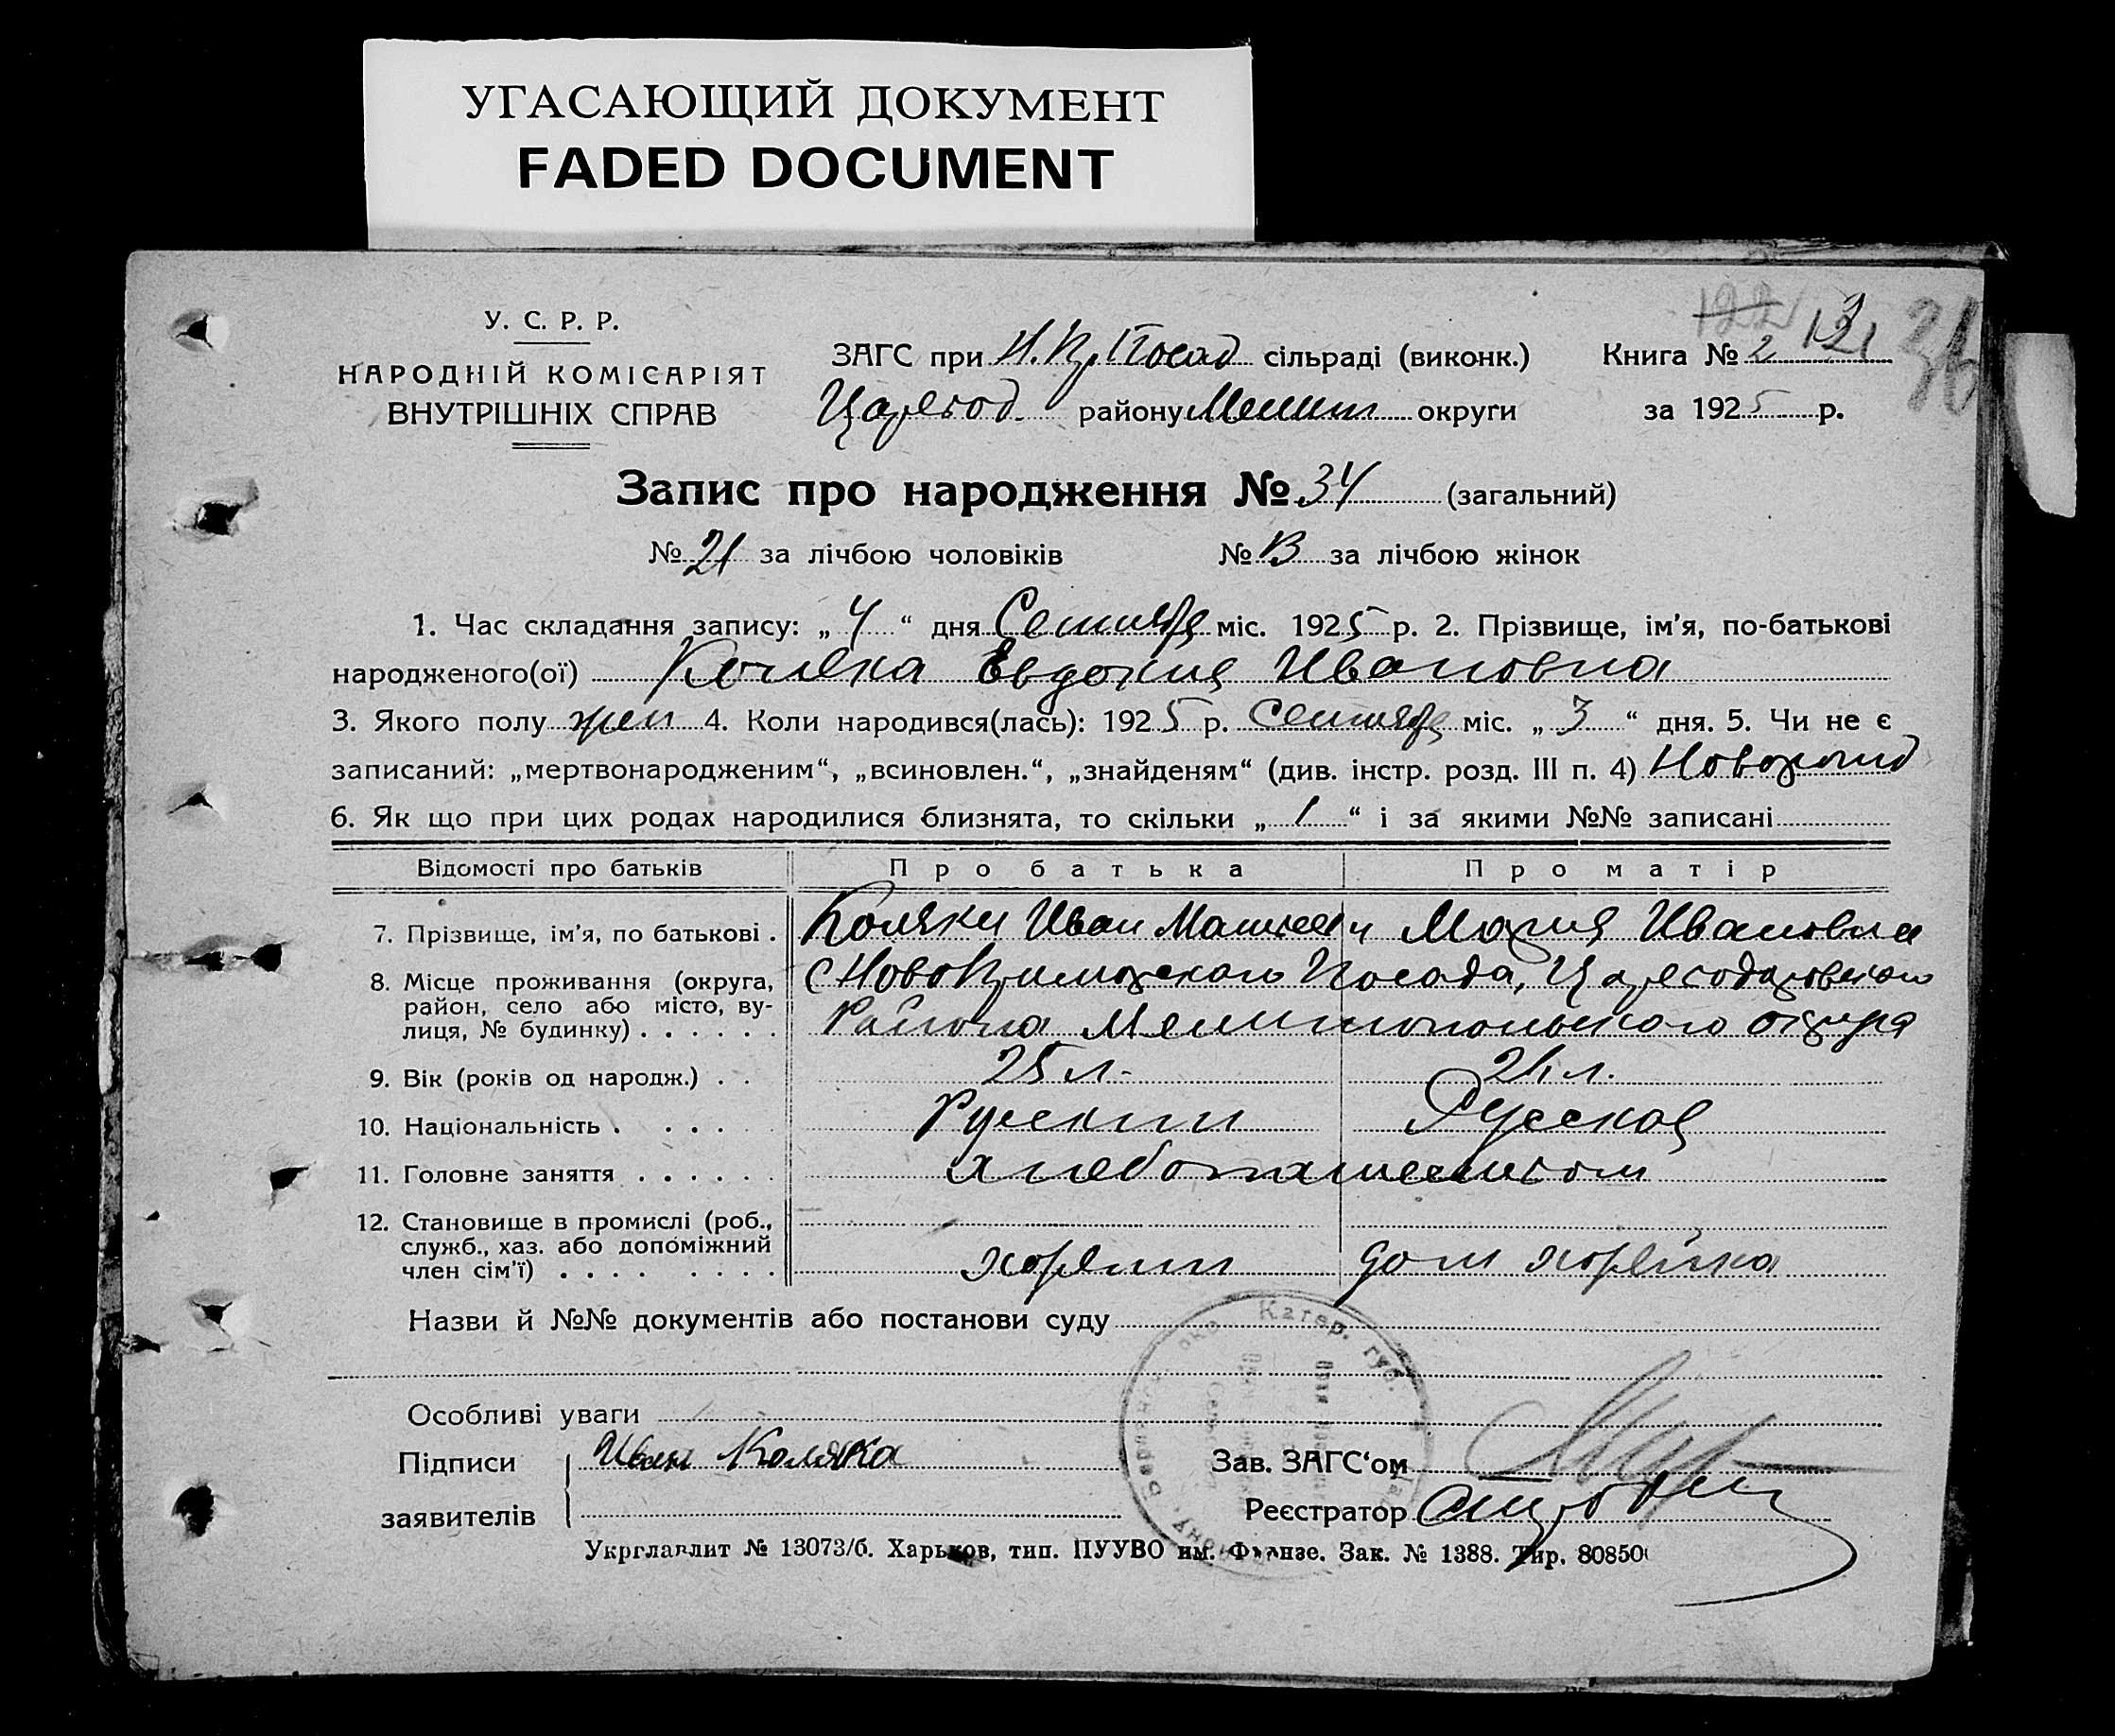 УГАСАЮЩИЙ ДОКУМЕНТ
FADED DOCUMENT
У. С. Р. Р.
НАРОДНІЙ КОМІСАРІЯТ
ВНУТРІШНІХ СПРАВ
ЗАГС при Н. Пр. Посад сільраді (виконк.)
Царегод району Мелит округи
Книга № 2
за 1925 р.
122 121 36
Запис про народження № 34 (загальний)
№ 21 за лічбою чоловіків № 13 за лічбою жінок
1. Час складання запису: „4“ дня Сентября міс. 1925 р. 2. Прізвище, ім’я, по-батькові
народженого(ої) Коляка Евдокия Ивановна
3. Якого полу жен 4. Коли народився(лась): 1925 р. Сентября міс. „3“ дня. 5. Чи не є
записаний: „мертвонародженим“, „всиновлен.“, „знайденям“ (див. інстр. розд. III п. 4) Новорожд
6. Як що при цих родах народилися близнята, то скільки „1“ і за якими №№ записані
Відомості про батьків Про батька Про матір
7. Прізвище, ім’я, по батькові . Коляки Иван Мария Ивановна
8. Місце проживання (округа,
район, село або місто, ву-
лиця, № будинку) . . . . . .
Посада, Царегодаровского
Района Мелитопольского округа
9. Вік (років од народж.) . . 25 л. 21 л.
10. Національність . . . . . Русский Русская
11. Головне заняття . . . . . . хлебопашеством
12. Становище в промислі (роб.,
служб., хаз. або допоміжний
член сім’ї) . . . . . . . .
хозяин дом хозяйка
Назви й №№ документів або постанови суду
Катер. губ.
Особливі уваги
Підписи
заявителів
Иван Коляка
Зав. ЗАГС‘ом
Реєстратор
Укрглавлит № 13073/б. Харьков, тип. ПУУВО им. Фрунзе. Зак. № 1388. Тир. 80850